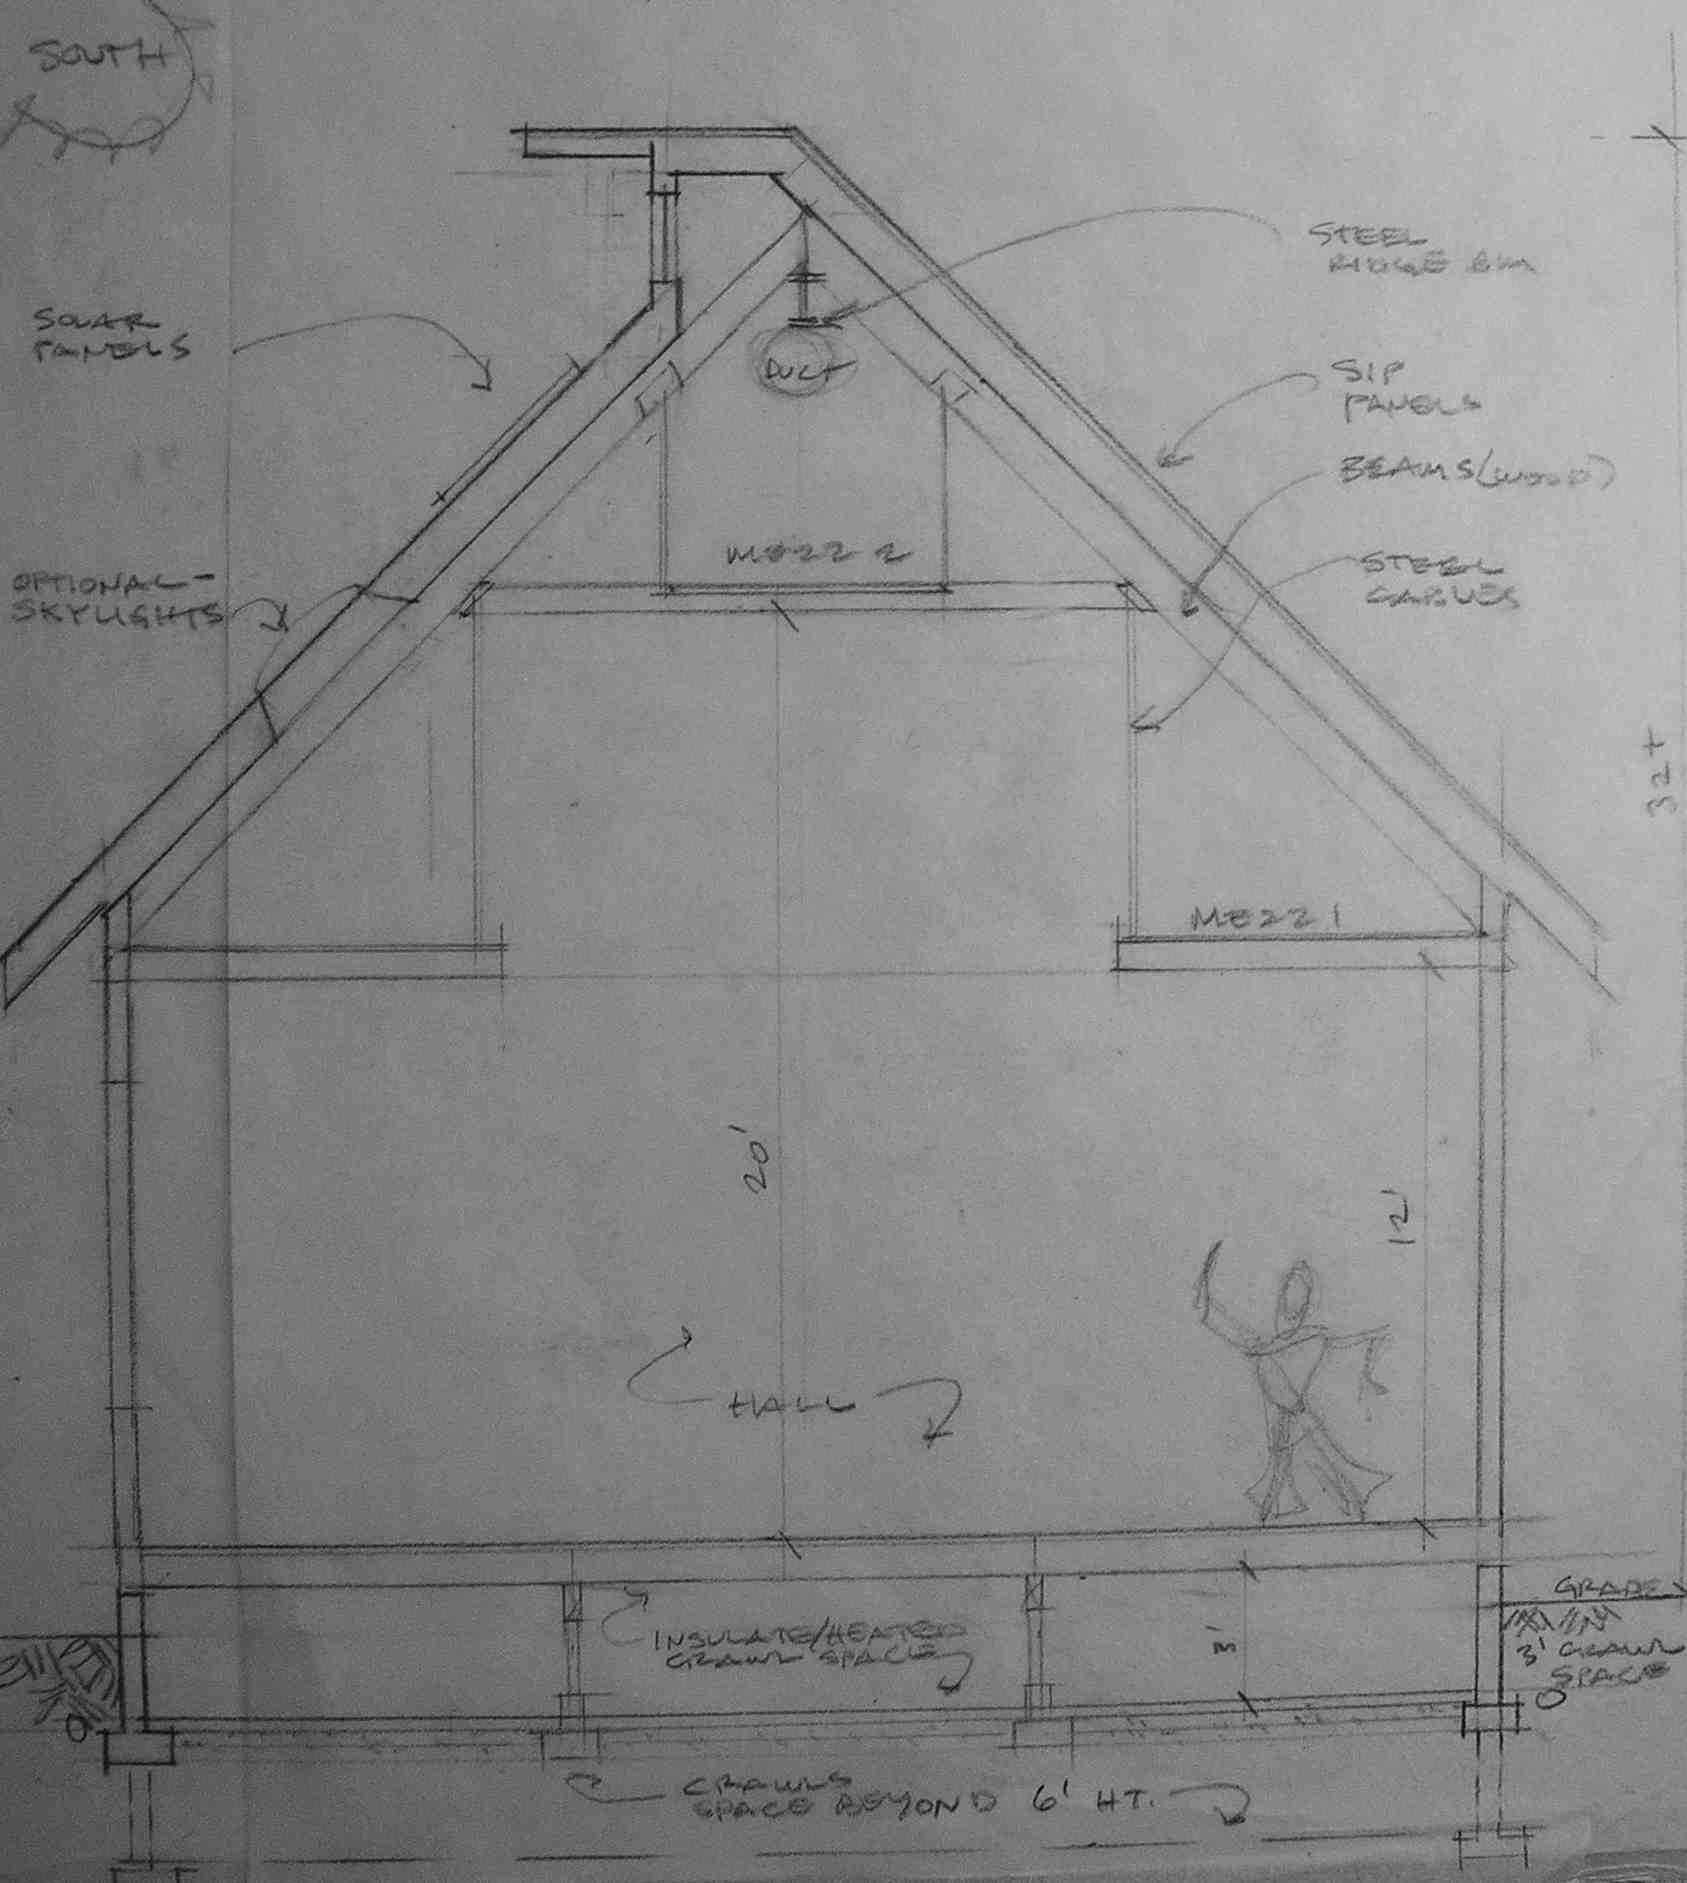 SOUTH
STEEL
RIDGE BM
SOLAR
PANELS
DUCT
SIP
PANELS
BEAMS (WOOD)
MEZZ 2
STEEL
CABLES
OPTIONAL-
SKYLIGHTS
32+
MEZZ 1
20'
12'
HALL
GRADE
INSULATE/HEATED
CRAWL SPACE
3'
3' CRAWL
SPACE
CRAWLS
SPACE BEYOND 6' HT.